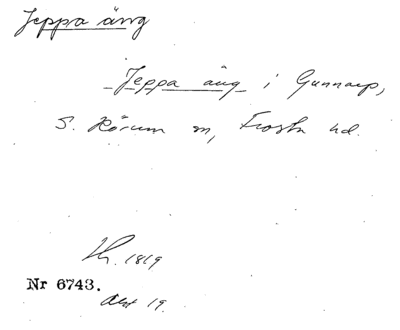 Jeppa äng
Jeppa äng i Gunnarp,
S. Rörum sn, Frosta hd.
Lh. 1819
Nr 6743.
Akt 19.